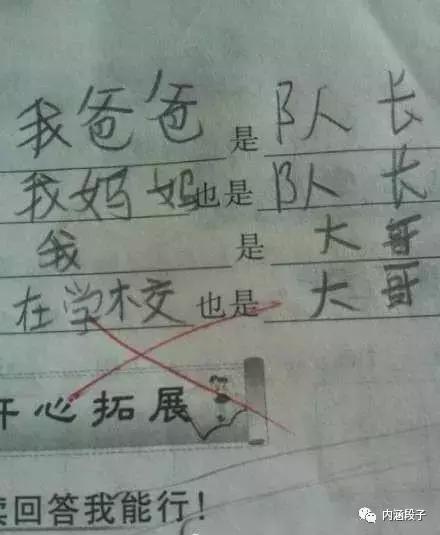 我爸爸是队长
我妈妈也是队长
我是大哥
在学校也是大哥
开心拓展
读回答我能行!
内涵段子